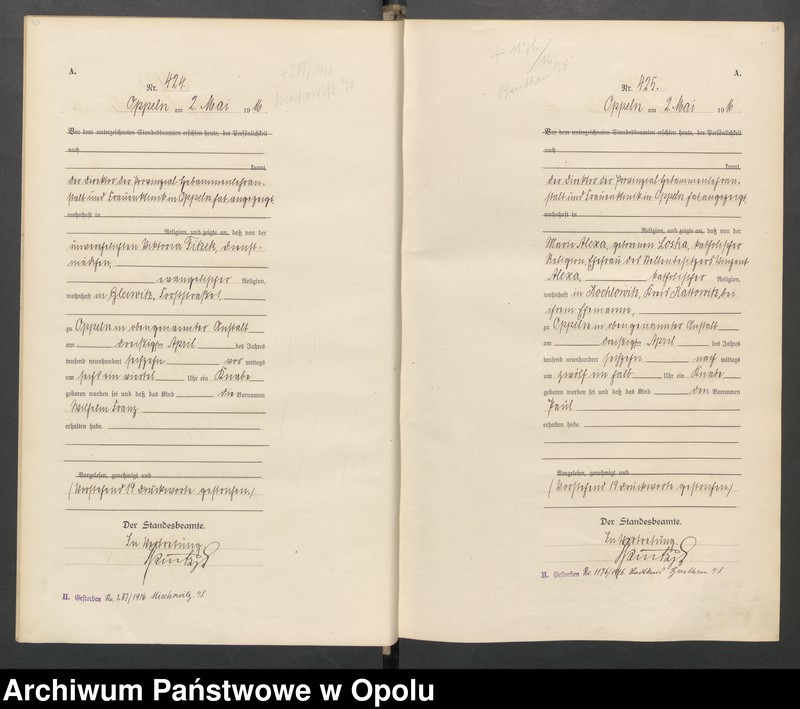 A.
Nr. 424.
Oppeln am 2. Mai 1916.
Vor dem unterzeichneten Standesbeamten erschien heute, der Persönlichkeit
nach
kannt,
der Direktor der Provinzial-Hebammenlehran-
stalt und Frauenklinik in Oppeln hat angezeigt
wohnhaft in
Religion, und zeigte an, daß von der
unverehelichten Viktoria, Dienst-
mädchen,
evangelischer Religion,
wohnhaft in Gleiwitz,
zu Oppeln in obengenannter Anstalt
am dreißigsten April des Jahres
tausend neunhundert sechzehn vor mittags
um sechs ein viertel Uhr ein Knabe
geboren worden sei und daß das Kind die Vornamen
Wilhelm Franz
erhalten habe.
Vorgelesen, genehmigt und
(Vorstehend 19 Druckworte gestrichen.)
Der Standesbeamte.
In Vertretung
H. Gestorben Nr. 287/1916 Miechowitz
A.
Nr. 425.
Oppeln am 2. Mai 1916
Vor dem unterzeichneten Standesbeamten erschien heute, der Persönlichkeit
nach
kannt,
der Direktor der Provinzial-Hebammenlehran-
stalt und Frauenklinik in Oppeln hat angezeigt
wohnhaft in
Religion, und zeigte an, daß von der
Marie Alexa, geborenen Loska, katholischer
Religion, Ehefrau des Vinzent
Alexa, katholischer Religion,
wohnhaft in Kochlowitz, Kreis Kattowitz, bei
ihrem Ehemanne,
zu Oppeln in obengenannter Anstalt
am dreißigsten April des Jahres
tausend neunhundert sechzehn nach mittags
um zwölf ein halb Uhr ein Knabe
geboren worden sei und daß das Kind den Vornamen
Paul
erhalten habe.
Vorgelesen, genehmigt und
(Vorstehend 19 Druckworte gestrichen.)
Der Standesbeamte.
In Vertretung
H. Gestorben Nr. 1176/1916 Beuthen
Archiwum Państwowe w Opolu